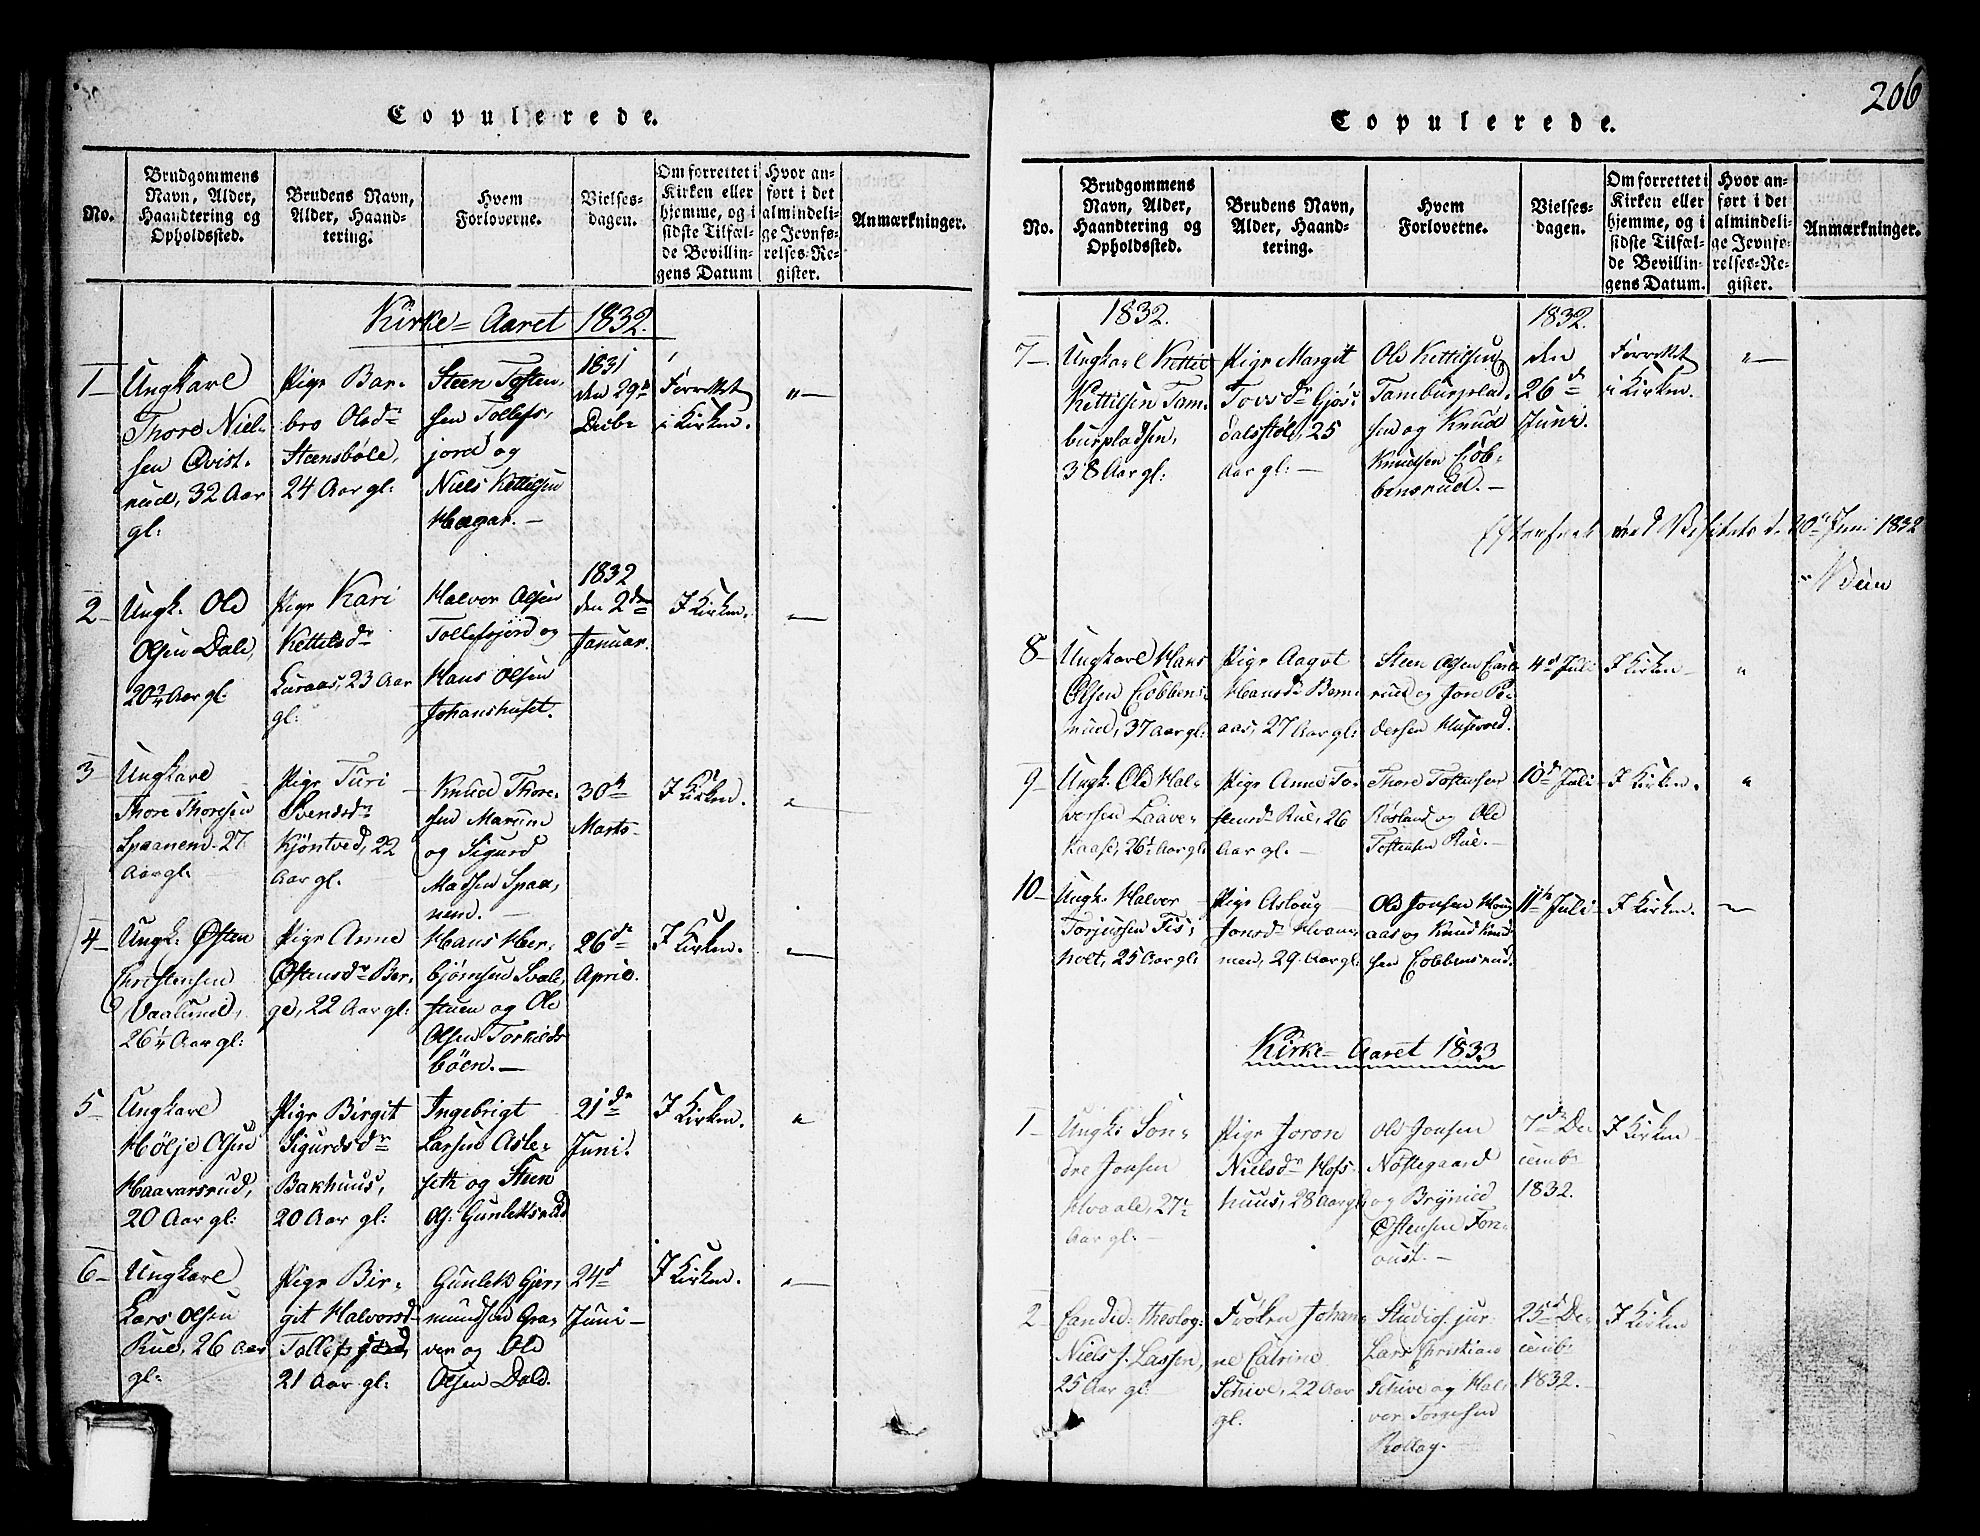 Copulerede.
No.
Brudgommens Navn, Alder, Haandtering og Opholdssted.
Brudens Navn, Alder, Haandtering.
Hvem Forloverne.
Vielsesdagen.
Om forrettet i Kirken eller hjemme, og i sidste Tilfælde Bevillingens Datum
Hvor anført i det almindelige Jevnførelses-Register.
Anmærkninger.
Kirke-Aaret 1832.
1
Ungkarl
Thore Niel-
sen Qvist-
rud, 32 Aar
gl:
Pige Bar-
bro Olsdr
Steensböle,
24 Aar gl:
Steen Tosten-
sen Tollefs-
jord og
Niels Kettilsen
Hagar.
1831
den 29de
Decbr
Forrettet
i Kirken.
2
Ungk. Ole
Olsen Dale,
20¾ Aar gl:
Pige Kari
Kettelsdr
Luraas, 23 Aar
gl:
Halvor Olsen
Tollefsjord og
Hans Olsen
Johanshuset.
1832
den 2den
Januar.
I Kirken.
3
Ungkarl
Thore Thoresen
Spaanem. 27
Aar gl.
Pige Turi
Svendsdr
Kjöntved, 22
Aar gl.
Knud Thore-
sen Marum
og Sigurd
Madsen Spaa-
nem.
30te
Marts
I Kirken.
4
Ungk: Östen
Christensen
Vaalund,
26¼ Aar gl:
Pige Anne
Östensdr Ber-
ge, 22 Aar gl:
Hans Her-
björnsen Svale-
stuen og Ole
Olsen Torkilds-
böen.
26de
April.
I Kirken.
5
Ungkarl
Hölje Olsen
Haavarsrud,
20 Aar gl:
Pige Birgit
Sigurdsdr
Bakhuus,
20 Aar gl:
Ingebrigt
Larsen Asle-
seth og Steen
Ols: Gunleiksrud
21de
Juni.
I Kirken.
6
Ungkarl
Lars Olsen
Rue, 26 Aar
gl:
Pige Bir-
git Halvorsd
Tollefsjord,
21 Aar gl:
Gunleik Gjer-
mundsen Gra-
ver og Ole
Olsen Dale.
24de
Juni
I Kirken.
206
Copulerede.
No.
Brudgommens Navn, Alder, Haandtering og Opholdssted.
Brudens Navn, Alder, Haandtering.
Hvem Forloverne.
Vielsesdagen.
Om forrettet i Kirken eller hjemme, og i sidste Tilfælde Bevillingens Datum.
Hvor anført i det almindelige Jevnførelses-Register.
Anmærkninger.
1832.
1832.
7
Ungkarl Kettil
Kettilsen Tam-
burpladsen,
38 Aar gl:
Pige Margit
Tovsdr Gjös-
dalsstöl, 25
Aar gl:
Ole Kettilsen
Tamburplad-
sen og Knud
Knudsen Cob-
bensrud.
den
26de
Juni.
Forrettet
i Kirken.
ved Visitats d. 20de Juni 1832
8
Ungkarl Hans
Olsen Cobbens-
rud, 37 Aar gl:
Pige Aagot
Hansdr Bem-
aas, 27 Aar gl:
Steen Olsen
og Jon Pe-
dersen Huseved.
4de Juli
I Kirken
9
Ungk. Ole Hal-
versen Laave-
kaase, 26½ Aar gl:
Pige Anne To-
stensdr Rue, 26
Aar gl.
Thore Tostensen
Rösland og Ole
Tostensen Rue.
10de Juli
I Kirken.
10
Ungk. Halvor
Torjussen Fis-
holt, 25 Aar gl:
Pige Aslaug
Jonsdr Hvam-
men, 29 Aar gl:
Ole Jonsen Houg-
aas og Knud Knud-
sen Cobbensrud.
11te Juli
I Kirken.
Kirke-Aaret 1833
1
Ungk: Son-
dre Jonsen
Hvaale, 27½
Aar gl:
Pige Joron
Nielsdr Hofs-
huus, 28 Aar gl:
Ole Jonsen
Nöstegaard
og Brynild
Östensen Fon-
nust.
7de De-
cembr
1832.
I Kirken
2
Candid: theolog:
Niels J. Lassen,
25 Aar gl:
Fröken Johan-
ne Catrine
Schive, 22 Aar
gl.
Studios. jur.
Lars Christian
Schive og Hal-
vor Torgesen
Rollag.
25de De-
cembr
1832.
I Kirken